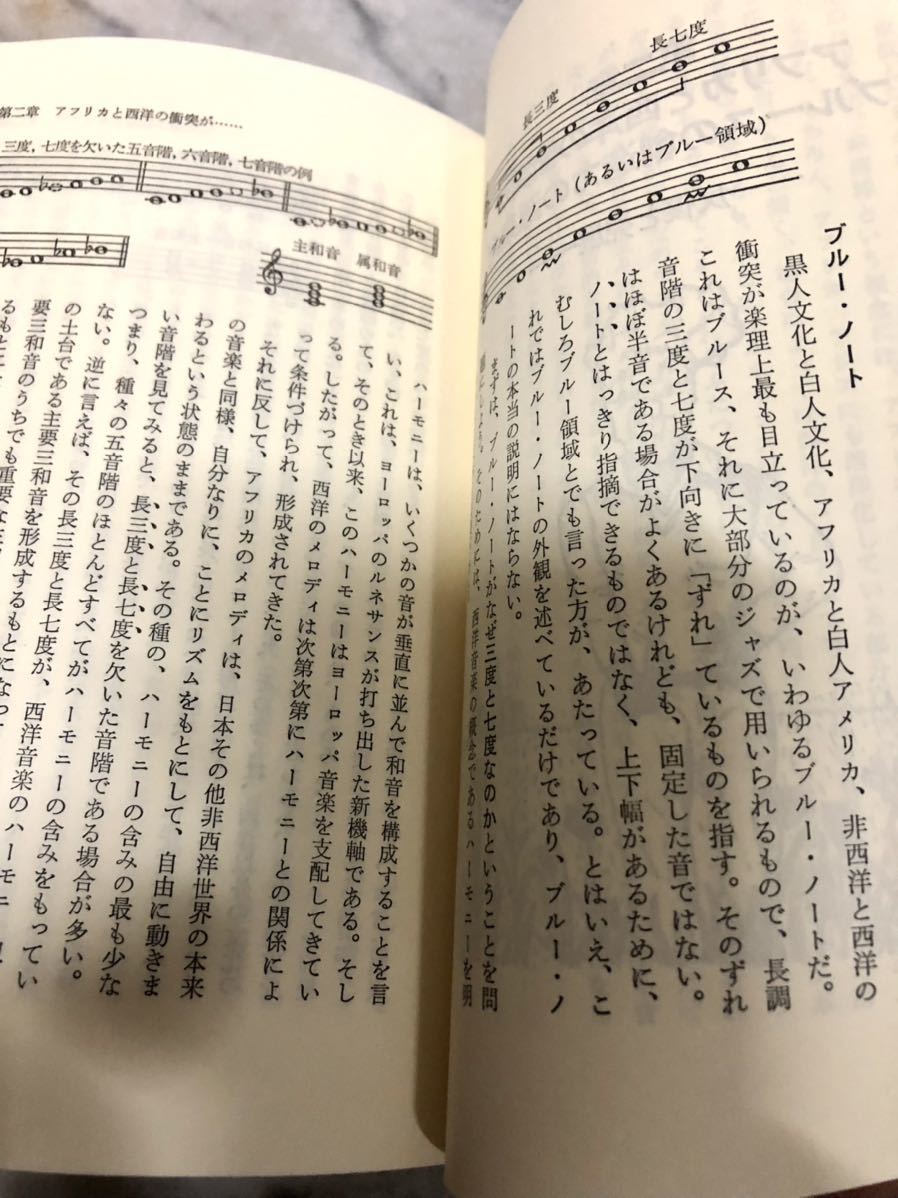 長七度
長三度
ブルー・ノート（あるいはブルー領域）
ブルー・ノート
黒人文化と白人文化、アフリカと白人アメリカ、非西洋と西洋の
衝突が楽理上最も目立っているのが、いわゆるブルー・ノートだ。
これはブルース、それに大部分のジャズで用いられるもので、長調
音階の三度と七度が下向きに「ずれ」ているものを指す。そのずれ
はほぼ半音である場合がよくあるけれども、固定した音ではない。
ノートとはっきり指摘できるものではなく、上下幅があるために、
むしろブルー領域とでも言った方が、あたっている。とはいえ、こ
れではブルー・ノートの外観を述べているだけであり、ブルー・ノ
ートの本当の説明にはならない。
まずは、ブルー・ノートがなぜ三度と七度なのかということを問
そのためには、西洋音楽の概念であるハーモニーを明
第二章 アフリカと西洋の衝突が……
三度，七度を欠いた五音階，六音階，七音階の例
主和音 属和音
ハーモニーは、いくつかの音が垂直に並んで和音を構成することを言
い、これは、ヨーロッパのルネサンスが打ち出した新機軸である。そし
て、そのとき以来、このハーモニーはヨーロッパ音楽を支配してきてい
る。したがって、西洋のメロディは次第次第にハーモニーとの関係によ
って条件づけられ、形成されてきた。
それに反して、アフリカのメロディは、日本その他非西洋世界の本来
の音楽と同様、自分なりに、ことにリズムをもとにして、自由に動きま
わるという状態のままである。その種の、ハーモニーの含みの最も少な
い音階を見てみると、長三度と長七度を欠いた音階である場合が多い。
つまり、種々の五音階のほとんどすべてがハーモニーの含みをもってい
ない。逆に言えば、その長三度と長七度が、西洋音楽のハーモニ
の土台である主要三和音を形成するもとになって
要三和音のうちでも重要な
るもとに